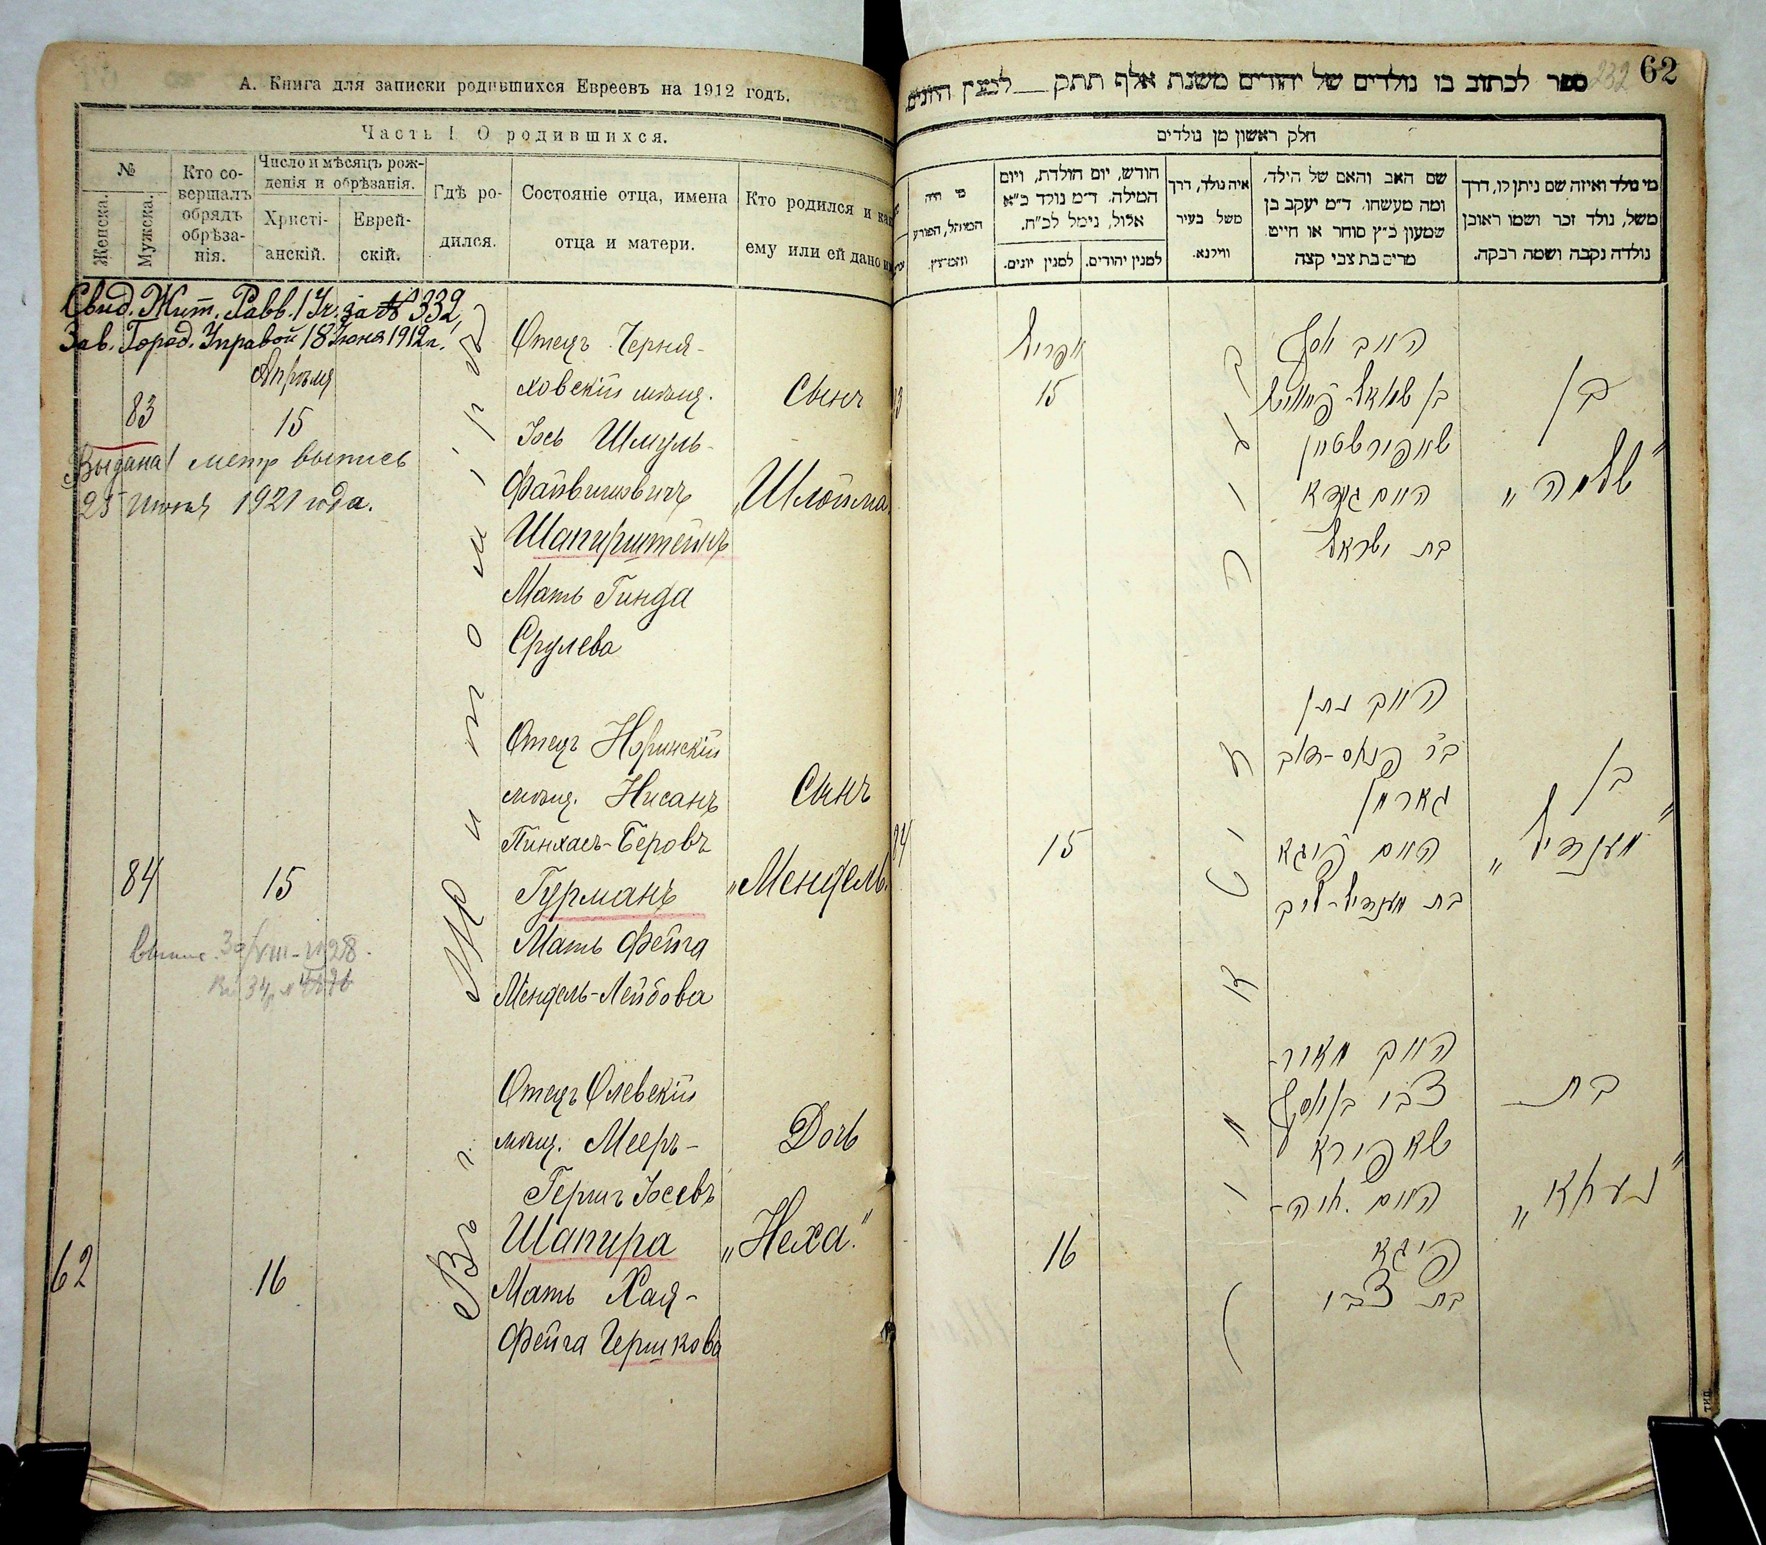 А. Книга для записки родившихся Евреевъ на 1912 годъ.
Часть I. О родившихся.
№
Женска.
Мужска.
Кто со-
вершалъ
обрядъ
обрѣза-
нія.
Число и мѣсяцъ рож-
денія и обрѣзанія.
Христі-
анскій.
Еврей-
скій.
Гдѣ ро-
дился.
Состояніе отца, имена
отца и матери.
Кто родился и как
ему или ей дано и
Свид. Жит. Равв. 1 Уч. за № 332,
Зав. Город. Управой 18 Іюня 1912 г.
Апрѣля
83
15
Выдана метр выпись
25 1921 года.
Въ г. Житомірѣ
Отецъ Черня-
ховскій мѣщ.
Іось Шмуль-
Файвишовичъ
Шапирштейнъ
Мать Гинда
Срулева
Сынъ
„Шлойма
84
15
Отецъ Норинскій
мѣщ. Нисанъ
Пинхасъ-Беровъ
Гурманъ
Мать Фейга
Мендель-Лейбова
Сынъ
„Мендель
62
16
Отецъ Олевскій
мѣщ. Мееръ-
Гершъ Іосевъ
Шапира
Мать Хая-
Фейга Гершкова
Дочь
„Неха."
62
232
ספר לכתוב בו נולדים של יהודים משנת אלף תתק
חלק ראשון מן נולדים
מי נולד ואיזה שם ניתן לו, דרך
משל, נולד זכר ושמו ראובן
נולדה נקבה ושמה רבקה.
שם האב והאם של הילד,
ומה מעשהו. ד״מ יעקב בן
שמעון כ״ץ סוחר או חייט
מרים בת צבי קצה
איה נולד, דרך
משל בעיר
ווילנא.
חודש, יום הולדת, ויום
המילה. ד״מ נולד כ״א
אלול, נימל לכ״ח.
למנין יהודים.
למנין יונים.
מי היה
המוהל, הפורע
והמוצץ.
אפריל
15
האב יוסף
בן שמואל-פייוויש
שאפירשטיין
האם גינדא
בת ישראל
בן
„שלמה"
15
האב ניסן
בר פנחס-דוב
גארמן
האם פייגא
בת מענדיל-ליב
בן
„מענדיל"
16
האב מאיר-
צבי בן יוסף
שאפירא
האם חיה-
פייגא
בת צבי
בת
„נעכא"